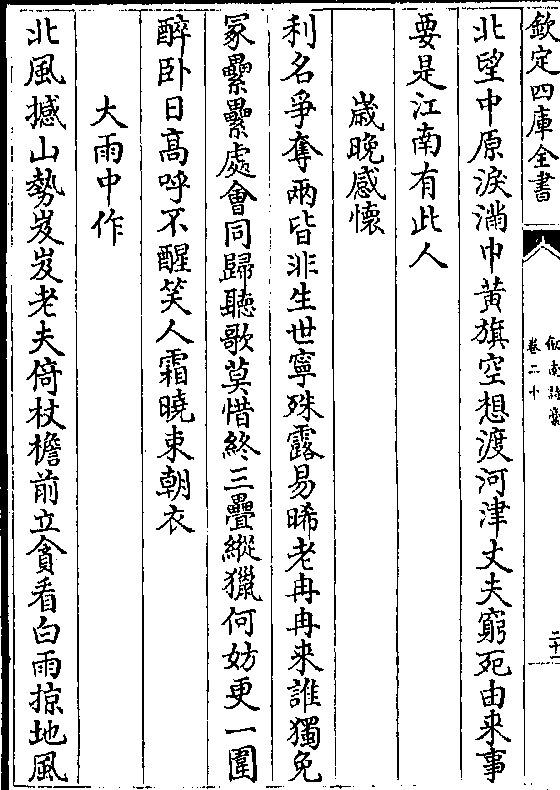 欽定四庫全書
劍南詩藁
卷二十
二十二
北望中原淚滿巾黃旗空想渡河津丈夫窮死由来事
要是江南有此人
歲晚感懷
利名爭奪兩皆非生世寧殊露易晞老冉冉来誰獨免
冢纍纍處會同歸聽歌莫惜終三疊縱獵何妨更一圍
醉卧日髙呼不醒笑人霜曉束朝衣
大雨中作
北風撼山勢岌岌老夫倚杖檐前立貪看白雨掠地風